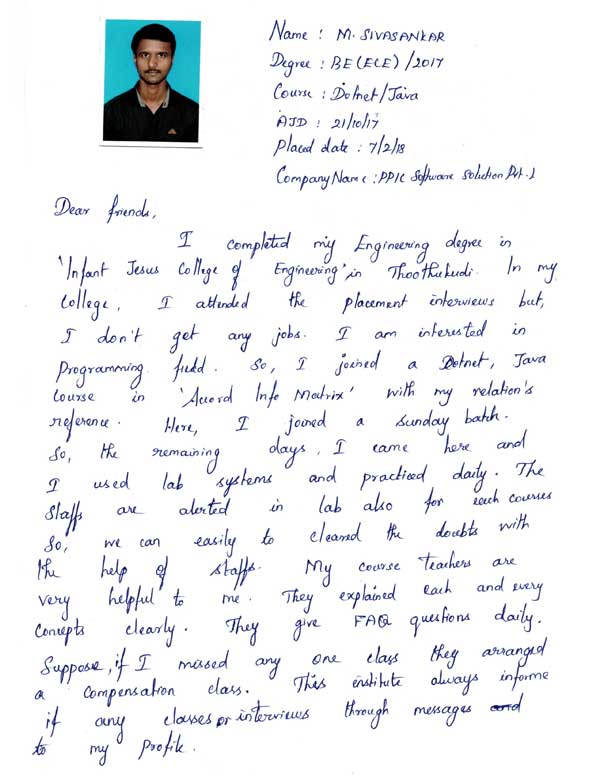 Name : M. SIVASANKAR
Degree : BE(ECE)/2017
Course : Dotnet/Java
AJD : 21/10/17
Placed date : 7/2/18
Company Name : PPIC Software Solution Pvt. L
Dear friends,
I completed my Engineering degree in
'Infant Jesus College of Engineering' in Thoothukudi. In my
College, I attended the placement interviews but,
I don't get any jobs. I am interested in
Programming field. So, I joined a Dotnet, Java
Course in 'Accord Info Matrix' with my relation's
reference. Here, I joined a Sunday batch.
So, the remaining days, I came here and
I used lab systems and practiced daily. The
Staffs are alerted in lab also for each courses
So, we can easily to cleared the doubts with
the help of staffs. My course teachers are
very helpful to me. They explained each and every
concepts clearly. They give FAQ questions daily.
Suppose, if I missed any one class they arranged
a compensation class. This institute always informe
if any classes or interviews through messages and
to my profile.